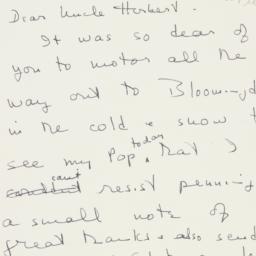 Dear Uncle Herbert.
It was so dear of
you to motor all the
way out to Bloomingd
in the cold & snow t
see my Pop today that I
can't resist penning
a small note of
great thanks & also send